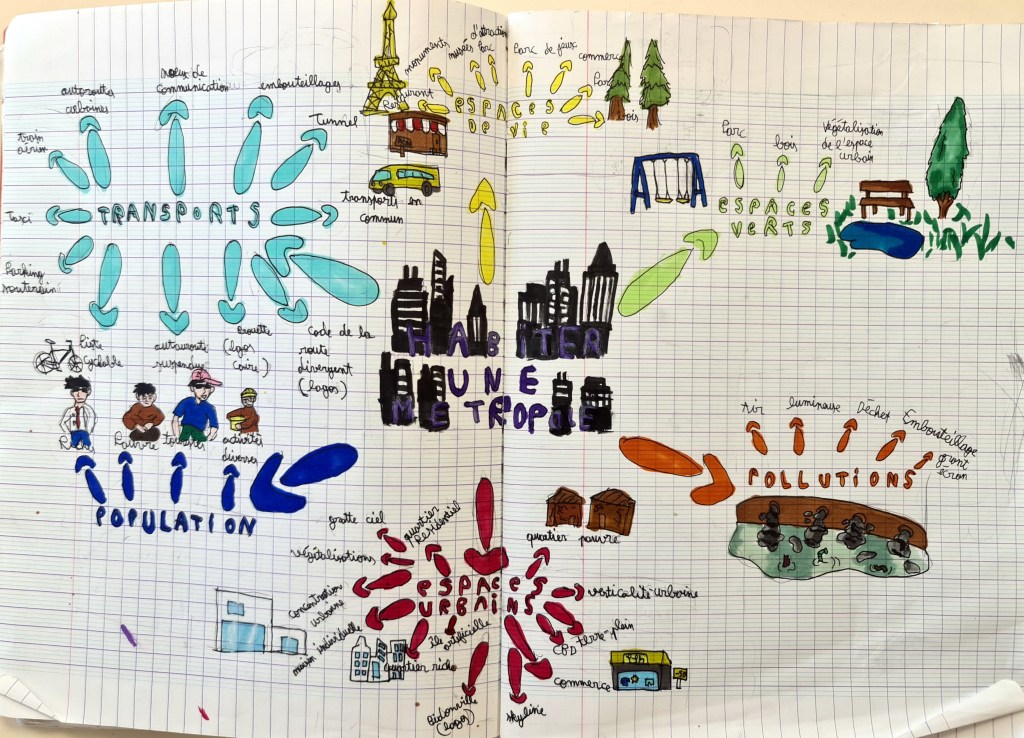 HABITER
UNE
METROPOLE
TRANSPORTS
autoroutes
urbaines
noeux de
communication
embouteillages
Tunnel
transports en
commun
train
aerien
Taxi
Parking
souterrain
Piste
Cyclable
autouroute
suspendue
(lagos
caire)
code de la
route
divergent
(lagos)
ESPACES
DE VIE
Restaurant
monuments
musées
Parc
d'attraction
Parc de jeux
commerce
Parc
bois
ESPACES
VERTS
Parc
bois
Végétalisation
de l'espace
urbain
POPULATION
Riches
Pauvre
touristes
activités
diverses
POLLUTIONS
Air
lumineuse
Déchet
Embouteillage
ESPACES
URBAINS
gratte ciel
quartier
Residentiel
végétalisations
concentration
urbaine
maison individuelle
quartier riche
île artificielle
bidonville
(lagos)
skyline
commerce
CBD
terre-plein
verticalité urbaine
quartier pauvre